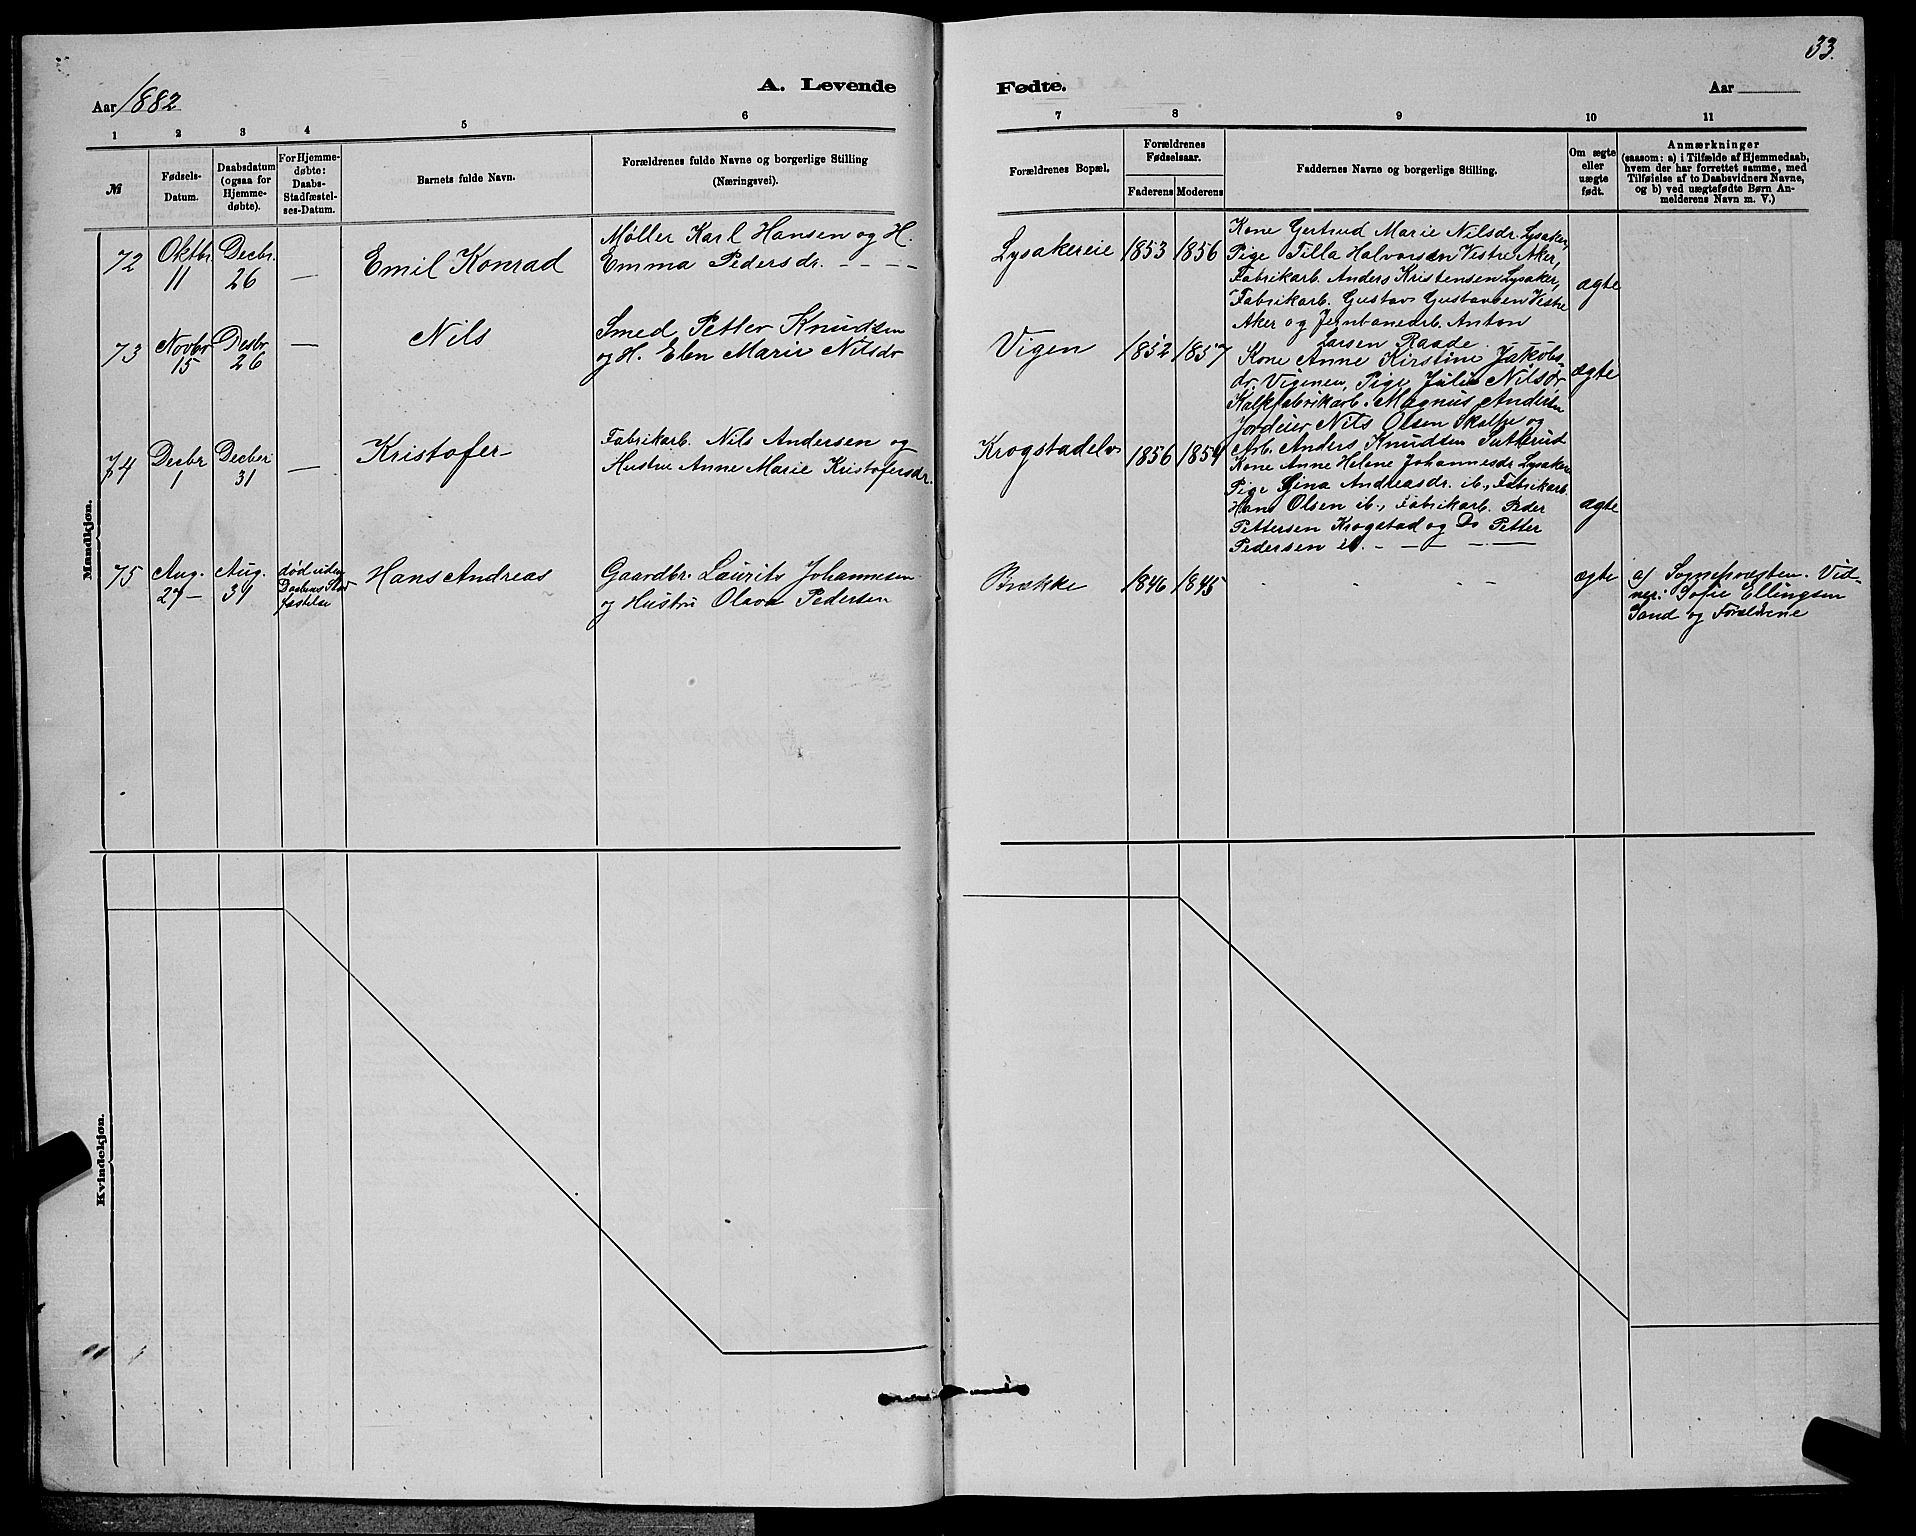 33.
Aar 1882
A. Levende
Fødte.
Aar
1 2 3 4 5 6 7 8 9 10 11
№
Fødsels-
Datum.
Daabsdatum
(ogsaa for
Hjemme-
døbte).
For Hjemme-
døbte:
Daabs-
Stadfæstel-
ses-Datum.
Barnets fulde Navn.
Forældrenes fulde Navne og borgerlige Stilling
(Næringsvei).
Forældrenes Bopæl.
Forældrenes
Fødselsaar.
Faderens Moderens
Faddernes Navne og borgerlige Stilling.
Om ægte
eller
uægte
født.
Anmærkninger
(saasom: a) i Tilfælde af Hjemmedaab,
hvem der har forrettet samme, med
Tilføielse af to Daabsvidners Navne,
og b) ved uægtefødte Børn An-
melderens Navn m. V.)
Mandkjøn.
72
Oktbr.
11
Decbr.
26
—
Emil Konrad
Møller Karl Hansen og H.
Emma Pedersdr. - - - -
Lysakereie
1853 1856
Kone Gertrud Marie Nilsdr. Lysaker,
Pige Tilla Halvorsen Vestre Aker,
Fabrikarb. Anders Kristensen Lysaker,
Fabrikarb. Gustav Gustavsen Vestre
Aker og Jernbanearb. Anton
Larsen Raade.
ægte
73
Novbr
15
Desbr
26
—
Nils
Smed Petter Knudsen
og H. Elen Marie Nilsdr
Vigen
1852 1857
Kone Anne Kirstine Jakobs
dr. Vigenen, Pige Julie Nilsdr
Kalkfabrikarb. Magnus Andersen
Jordeier Nils Olsen Skalpe og
Arb. Anders Knudsen Sætterud
ægte
74
Decbr
1
Decber
31
—
Kristofer
Fabrikarb. Nils Andersen og
Hustru Anne Marie Kristofersdr.
Krogstadelv
1856 1854
Kone Anne Helene Johannesdr Lysaker
Pige Gina Andreasdr. ib., Fabrikarb.
Hans Olsen ib., Fabrikarb. Peder
Pettersen Krogstad og Do Petter
Pedersen ib. - - - -
ægte
75
Aug.
27
Aug.
31
død uden
Daabens Stad
fæstelse
Hans Andreas
Gaardbr. Laurits Johannesen
og Hustru Olava Pedersen
Brække
1846 1845
- - - -
ægte
a) Sognepræsten. Vid-
ner: Sofie Ellingsen
Sand og Forældrene
Kvindekjøn.